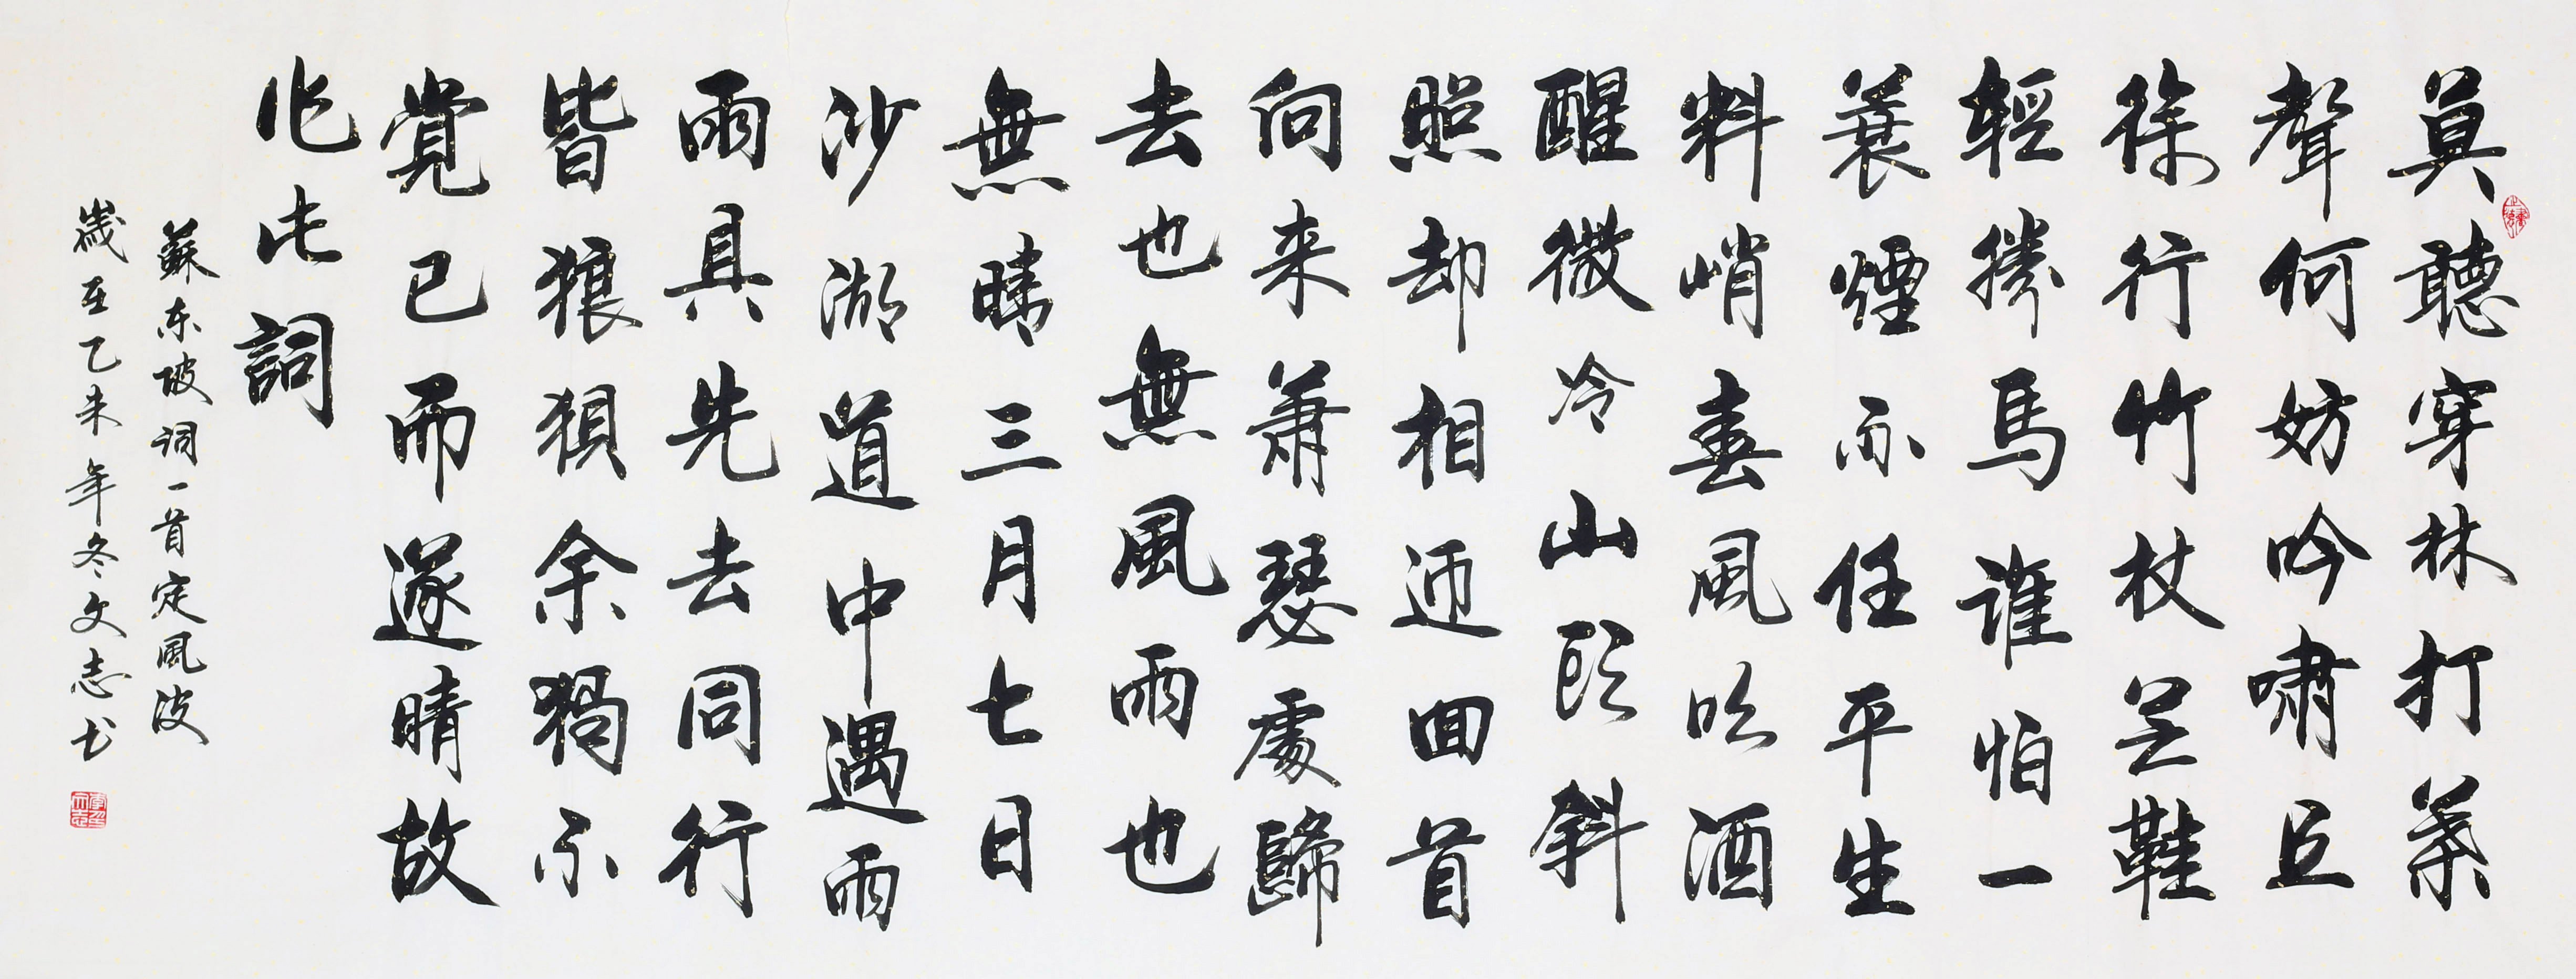 莫聽穿林打葉
聲何妨吟嘯且
徐行竹杖芒鞋
輕勝馬誰怕一
蓑煙雨任平生
料峭春風吹酒
醒微冷山頭斜
照却相迎回首
向来蕭瑟處歸
去也無風雨也
無晴三月七日
沙湖道中遇雨
雨具先去同行
皆狼狽余獨不
覺已而遂晴故
作此詞
蘇东坡词一首定風波
歲在乙未年冬文志书